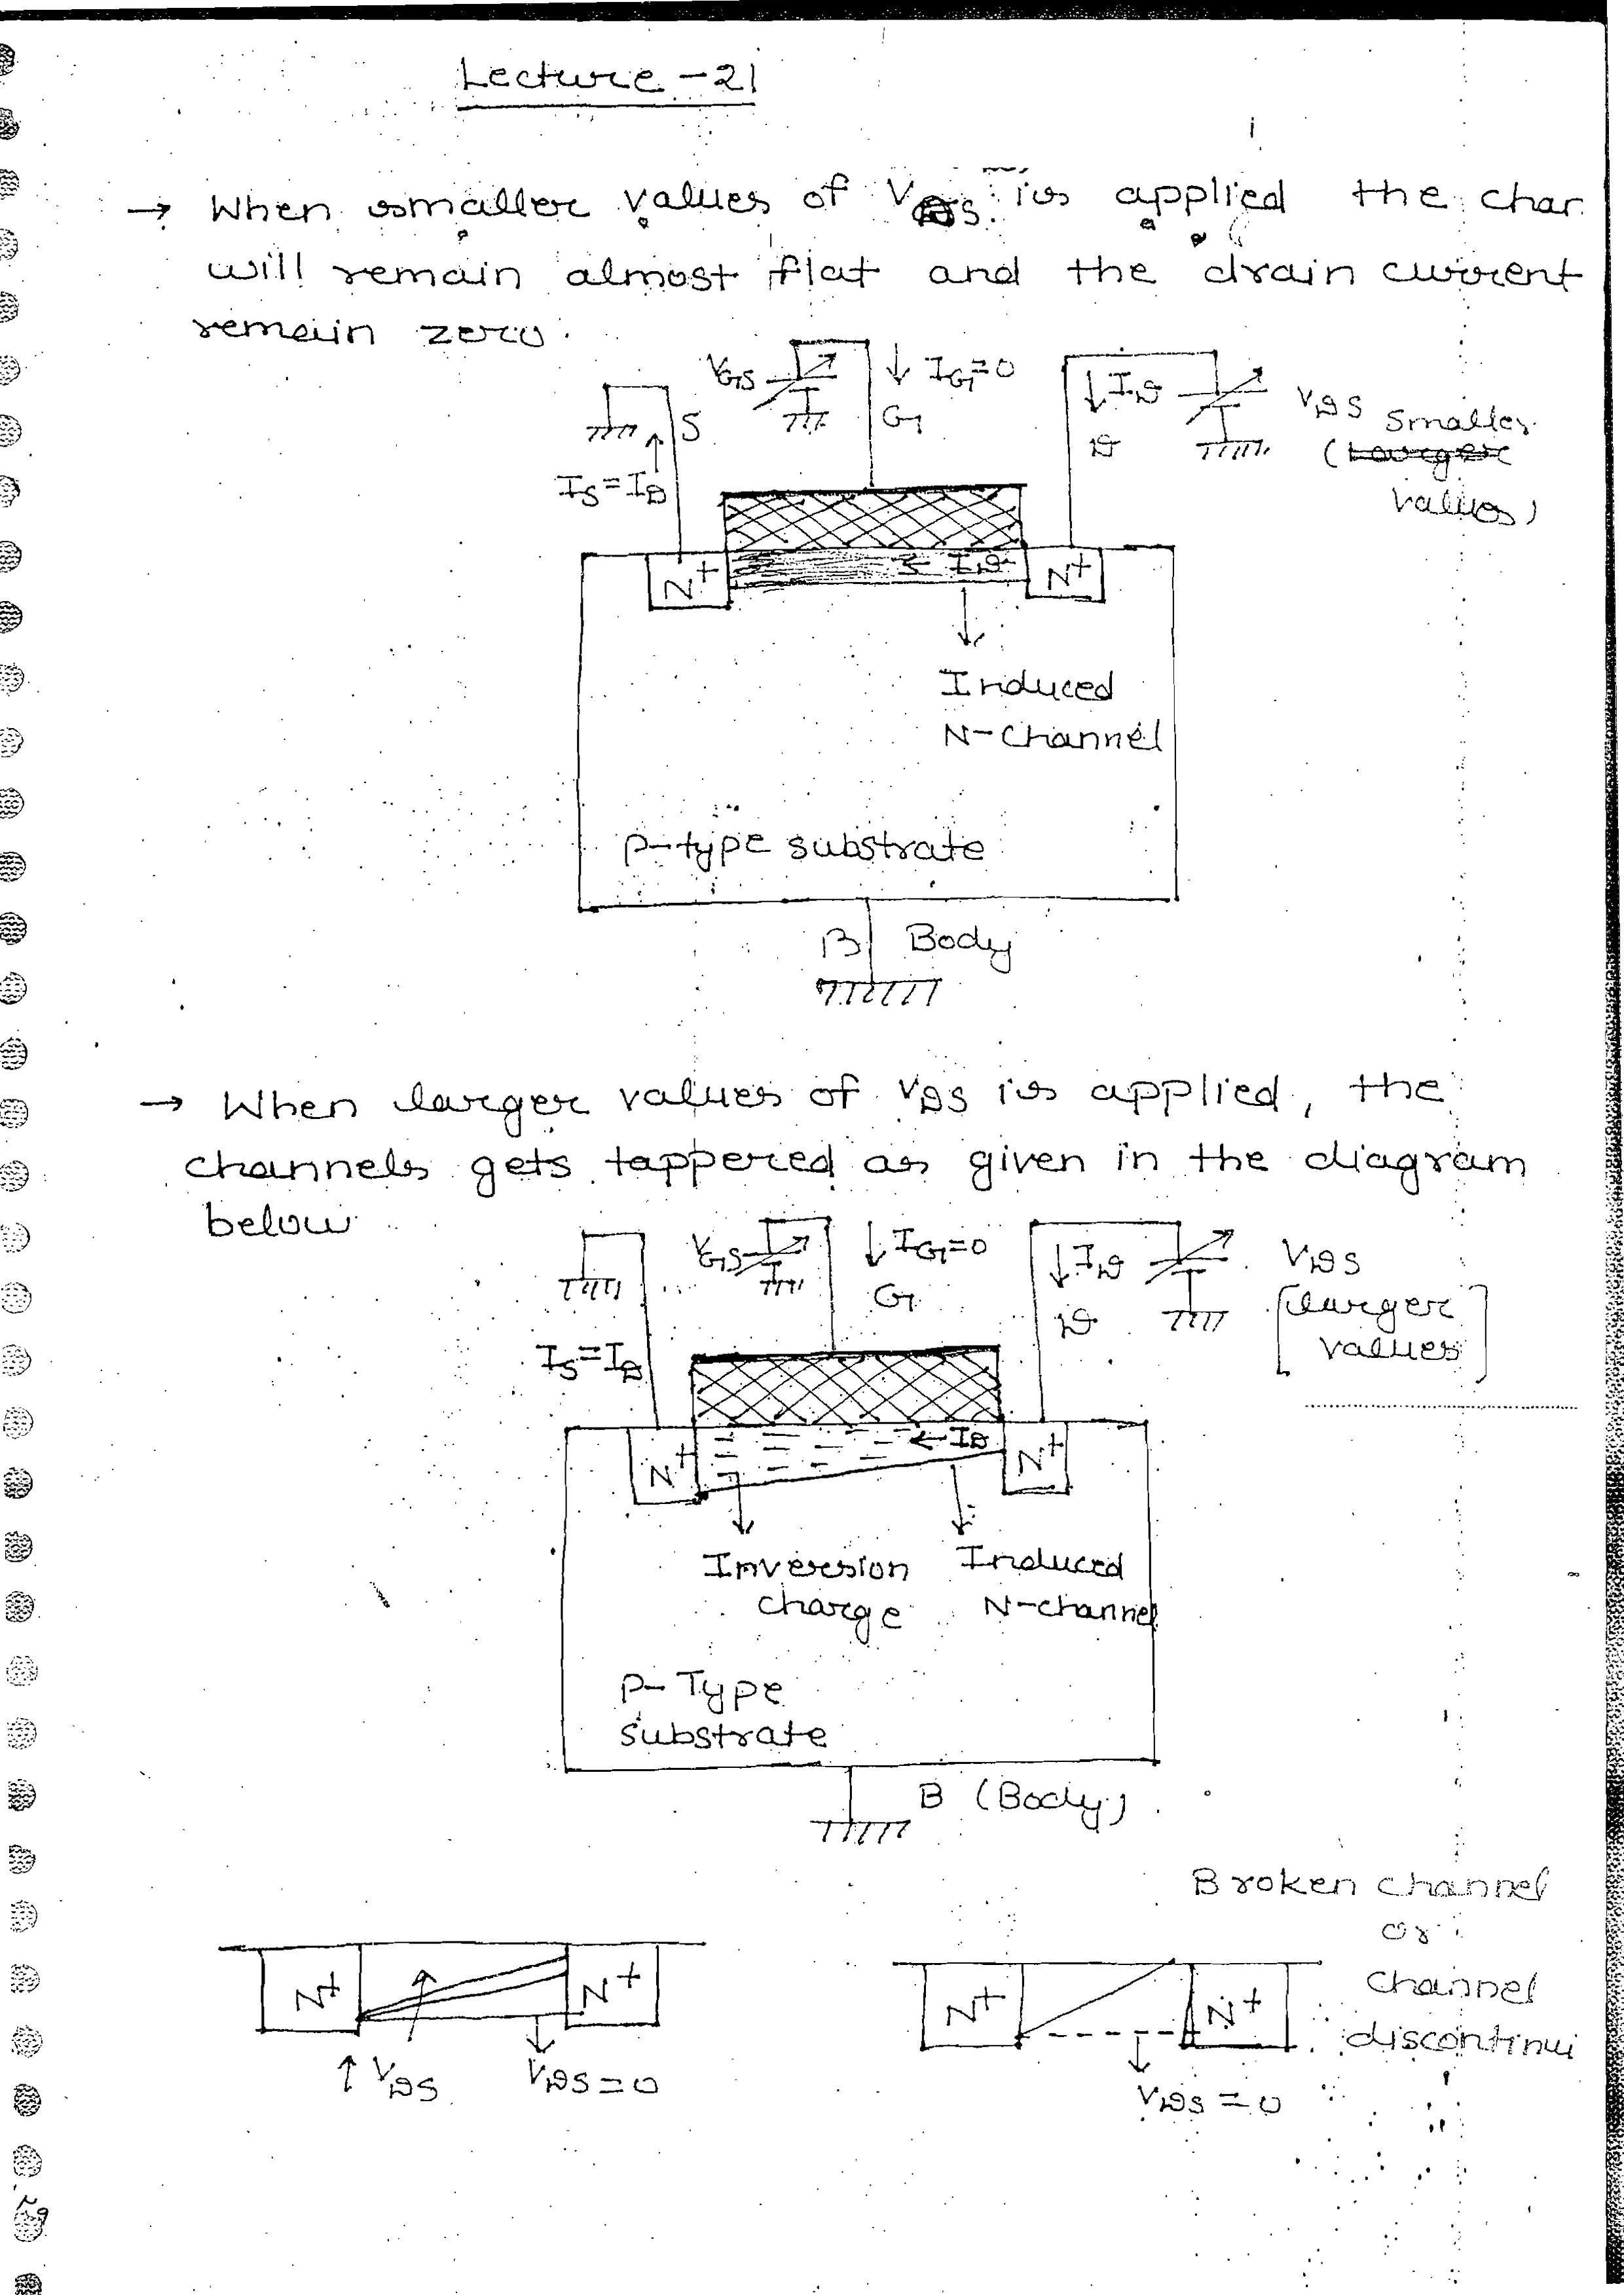 Lecture - 21
→ When smaller values of VDS is applied the char
will remain almost flat and the drain current
remain zero.
VGS
↓ IG=0
G
S
IS=ID
↓ ID
D
VDS
Smaller
(Larger
values)
N+
← ID
N+
Induced
N-channel
P-type substrate
B
Body
→ When larger values of VDS is applied, the
channels gets tappered as given in the diagram
below
VGS
↓ IG=0
G
IS=ID
↓ ID
D
VDS
[larger
values]
N+
← ID
N+
Inversion
charge
Induced
N-channel
P-Type
substrate
B (Body)
Broken channel
or
channel
discontinui
N+
N+
↑ VDS
VDS=0
N+
N+
VDS=0